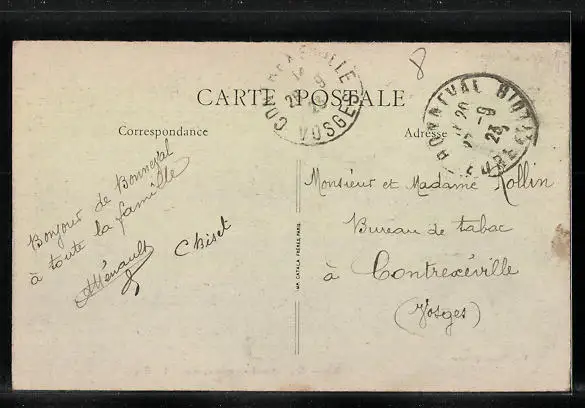 8
CONTREXEVILLE
VOSGES
CARTE POSTALE
BONNEVAL
20
-9
23
Correspondance
Adresse
Bonjour de Bonneval
à toute la famille
Ménault
Chiset
IMP. CATALA FRÈRES, PARIS
Monsieur et Madame Rollin
Bureau de tabac
à Contrexéville
(Vosges)